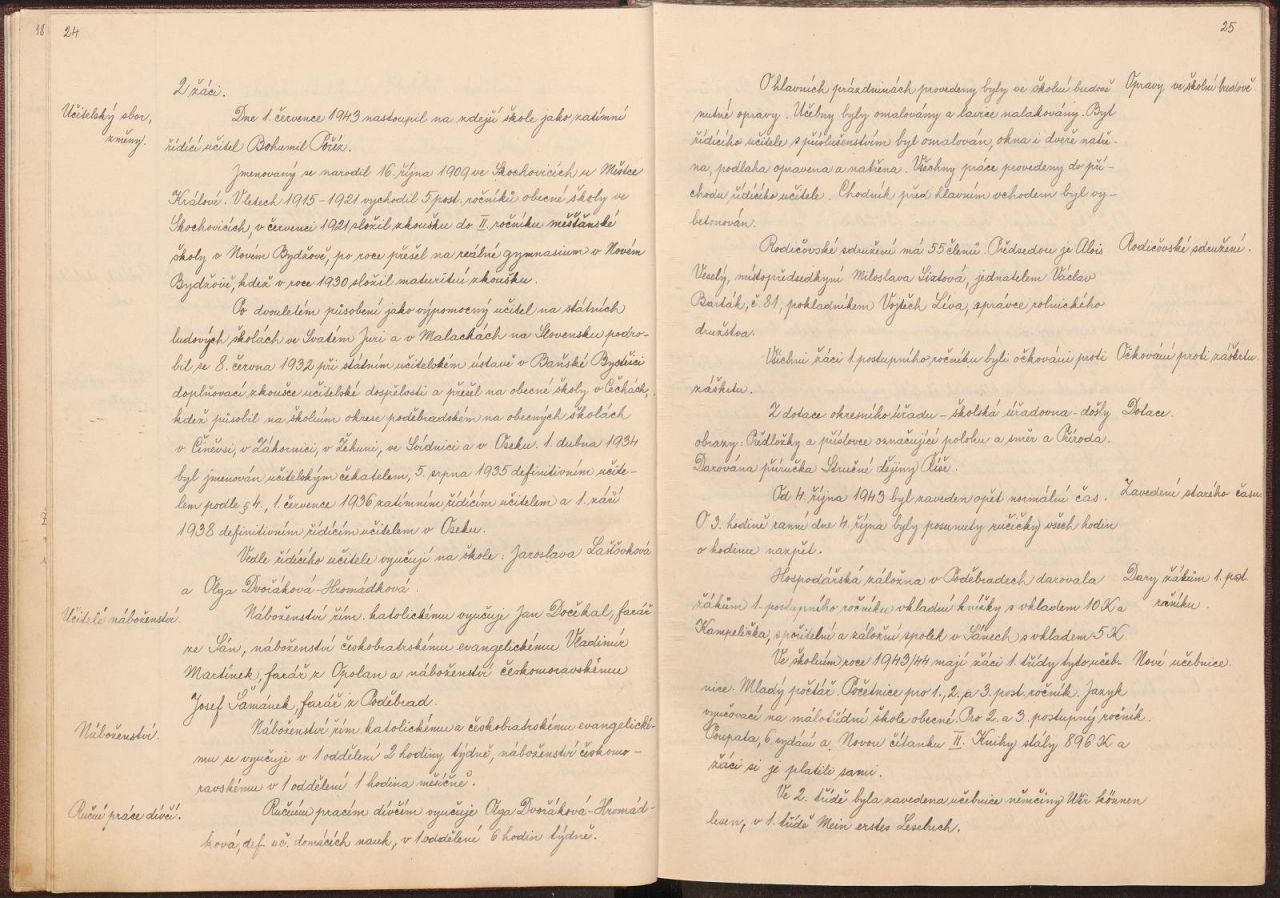 18 24
2 žáci.
Učitelský sbor,
změny.
Dne 1. července 1943 nastoupil na zdejší škole jako zatímní
řídící učitel Bohumil Pořéz.
Jmenovaný se narodil 16. října 1909 ve Skochovicích u Městce
Králové. V letech 1915-1921 vychodil 5 post. ročníků obecné školy ve
Skochovicích, v červenci 1921 složil zkoušku do II. ročníku měšťanské
školy v Novém Bydžově, po roce přešel na reálné gymnasium v Novém
Bydžově, kdež v roce 1930 složil maturitní zkoušku.
Po dvouletém působení jako výpomocný učitel na státních
ludových školách ve Svatém Juri a v Malackách na Slovensku podro-
bil se 8. června 1932 při státním učitelském ústavě v Baňské Bystřici
doplňovací zkoušce učitelské dospělosti a přešel na obecné školy v Čechách,
kdež působil na školním okrese poděbradském na obecných školách
v Činěvsi, v Záhornici, v Žehuni, ve Svídnici a v Oseku. 1. dubna 1934
byl jmenován učitelským čekatelem, 5. srpna 1935 definitivním učite-
lem podle § 4., 1. července 1936 zatímním řídícím učitelem a 1. září
1938 definitivním řídícím učitelem v Oseku.
Vedle řídícího učitele vyučují na škole: Jaroslava Laštovková
a Olga Dvořáková-Hromádková.
Učitelé náboženství.
Náboženství řím. katolickému vyučuje Jan Dočekal, farář
ze Sán, náboženství českobratrskému evangelickému Vladimír
Martínek, farář z Opolan a náboženství českomoravskému
Josef Šamánek, farář z Poděbrad.
Náboženství.
Náboženství řím. katolickému a českobratrskému evangelické-
mu se vyučuje v 1 oddělení 2 hodiny týdně, náboženství českomo-
ravskému v 1 oddělení 1 hodina měsíčně.
Ruční práce dívčí.
Ručním pracím dívčím vyučuje Olga Dvořáková-Hromád-
ková, def. uč. domácích nauk, v 1 oddělení 6 hodin týdně.
25
O hlavních prázdninách provedeny byly ve školní budově
Opravy ve školní budově.
nutné opravy. Učebny byly omalovány a lavice nalakovány. Byt
řídícího učitele s příslušenstvím byl omalován, okna i dveře natře-
na, podlaha opravena a natřena. Všechny práce provedeny do pří-
chodu řídícího učitele. Chodník před hlavním vchodem byl vy-
betonován.
Rodičovské sdružení má 55 členů. Předsedou je Alois
Rodičovské sdružení.
Veselý, místopředsedkyní Miloslava Sixtová, jednatelem Václav
Barták, č. 81, pokladníkem Vojtěch Líva, správce rolnického
družstva.
Všichni žáci 1. postupního ročníku byli očkováni proti
Očkování proti záškrtu.
záškrtu.
Z dotace okresního úřadu - školská úřadovna - došly
Dotace.
obrazy: Předložky a příslovce označující polohu a směr a Příroda.
Darována příručka Stručné dějiny Říše.
Od 4. října 1943 byl zaveden opět normální čas.
Zavedení starého času.
O 3. hodině ranní dne 4. října byly posunuty ručičky všech hodin
o hodinu nazpět.
Hospodářská záložna v Poděbradech darovala
Dary žákům 1. post.
ročníku.
žákům 1. postupního ročníku vkladní knížky s vkladem 10 K a
Kampelička, spořitelní a záložní spolek v Sánech s vkladem 5 K.
Ve školním roce 1943/44 mají žáci 1. třídy tyto učeb-
Nové učebnice.
nice: Mladý počtář. Početnice pro 1., 2. a 3. post. ročník. Jazyk
vyučovací na málotřídní škole obecné. Pro 2. a 3. postupný ročník.
Poupata, 6. vydání a Novou čítanku II. Knihy stály 896 K a
žáci si je platili sami.
Ve 2. třídě byla zavedena učebnice němčiny Wir können
lesen, v 1. třídě Mein erstes Lesebuch.